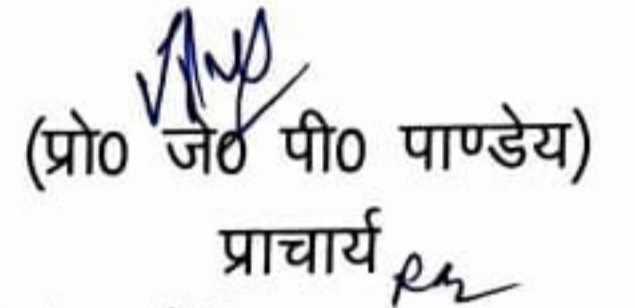 (प्रो0 जे0 पी0 पाण्डेय)
प्राचार्य